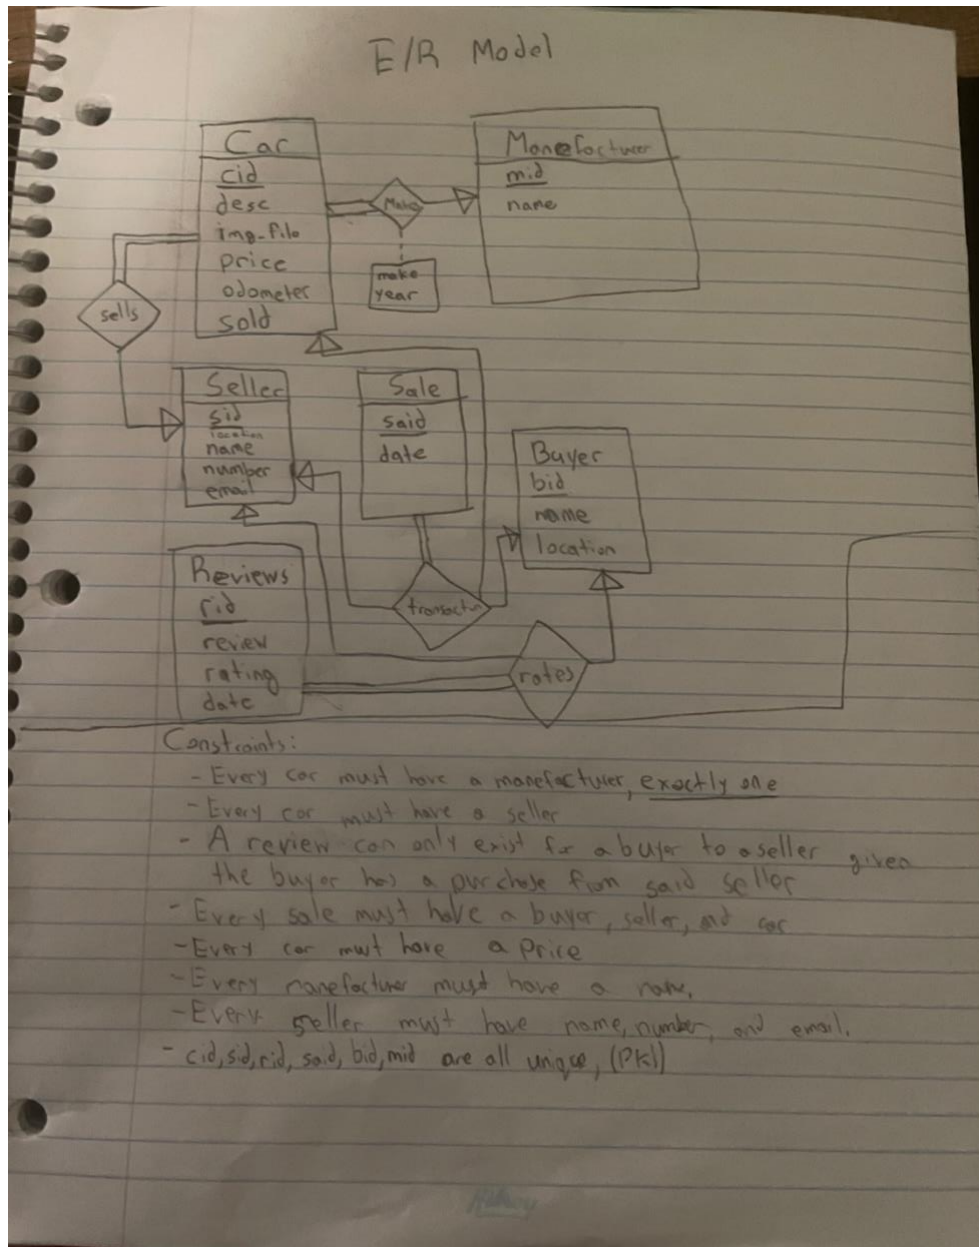 E/R Model
Car
cid
desc
img-file
price
odometer
sold
Make
make
year
Manefacturer
mid
name
sells
Seller
sid
location
name
number
email
Sale
said
date
Buyer
bid
name
location
Reviews
rid
review
rating
date
transaction
rates
Constraints:
- Every car must have a manefacturer, exactly one
- Every car must have a seller
- A review can only exist for a buyer to a seller given
the buyer has a purchase from said seller
- Every sale must have a buyer, seller, and car
- Every car must have a price
- Every manefacturer must have a name.
- Every seller must have name, number, and email.
- cid, sid, rid, said, bid, mid are all unique, (PK!)